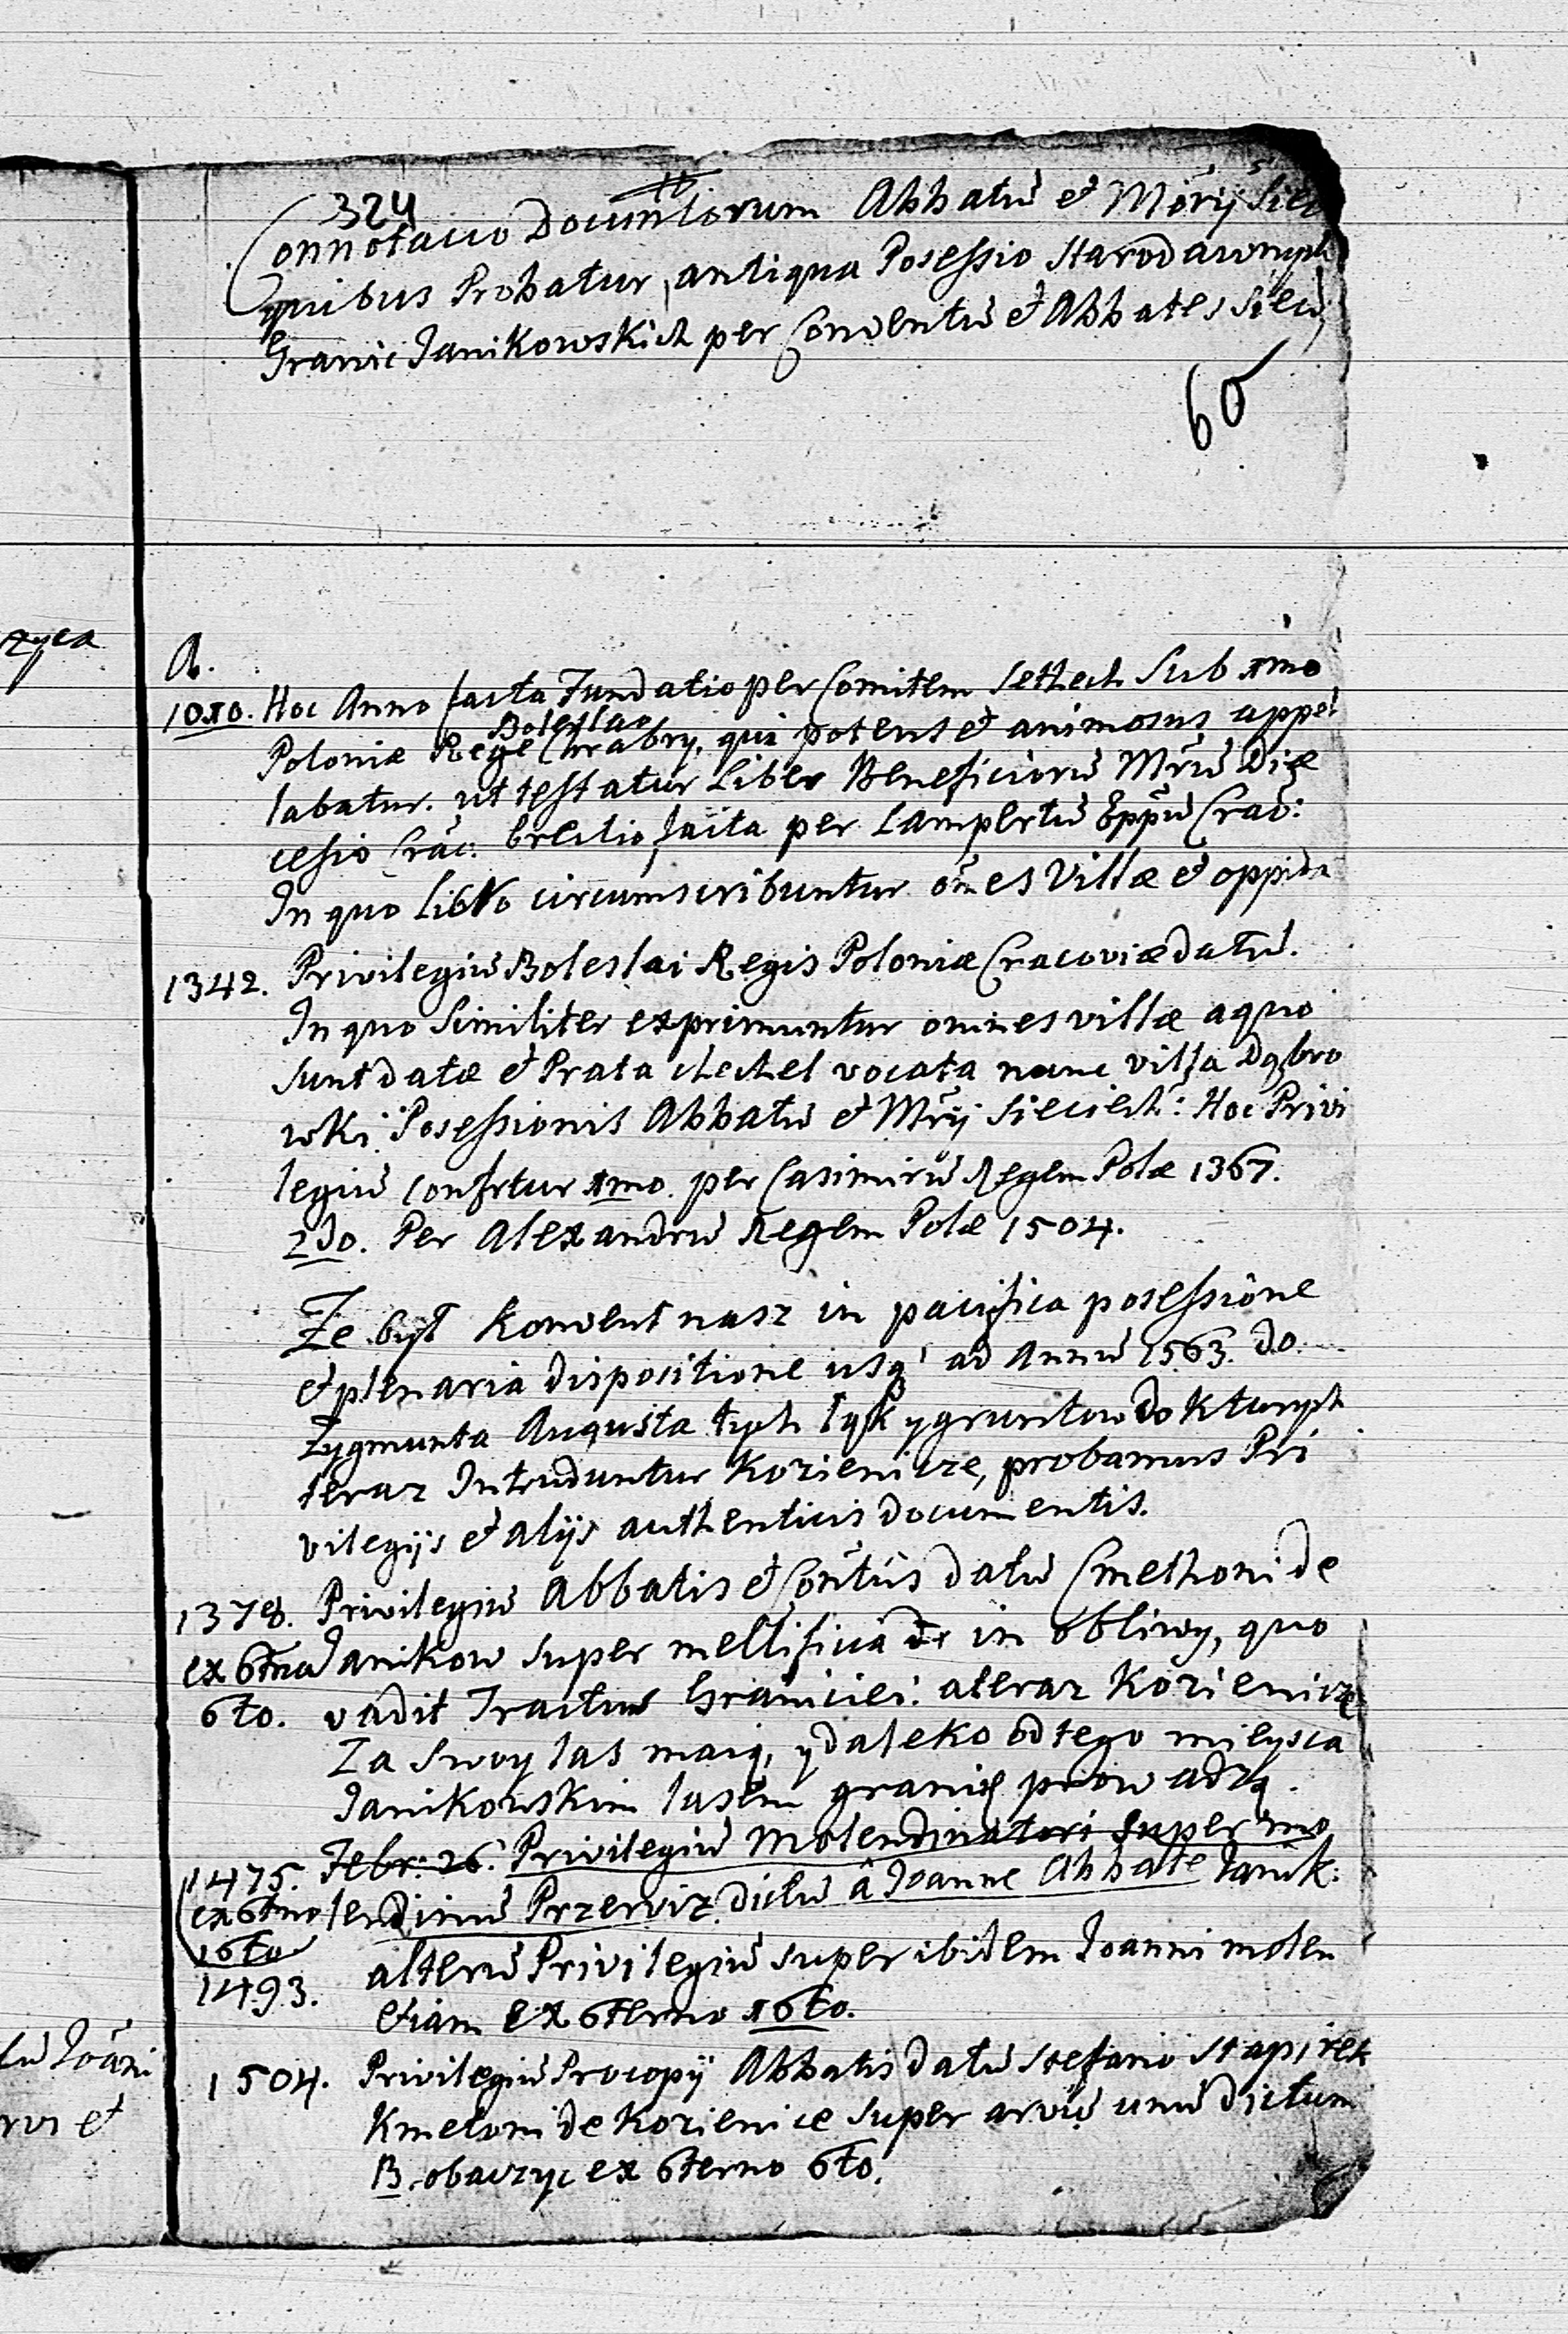 324
Connotatio Documtorum Abbatū et Mōrij Siec
quibus Probatur, antiqua Posessio Starodawnych
Granic Janikowskich per Conventū et Abbates Siec
60
zyca
A.
1010. Hoc Anno facta Fundatio per Comitem Sethech Sub 1mo
Boleslao
Poloniæ Rege Chrabry, qui potens et animosus appel
labatur. ut testatur Liber Beneficiorū Mrū Diæ
cesio Crac. erectio facta per Lampertū Eppū Crac:
In quo Libro circumscribuntur om̄es Villæ et oppida
1342. Privilegiū Boleslai Regis Poloniæ Cracoviæ datū.
In quo Similiter exprimuntur omnes villæ a quo
Sunt datæ et Prata chechel vocata nunc villa Dąbro
wki Posessionis Abbatū et Mrij Sieciech: Hoc Privi
legiū confrtur 1mo. per Casimirū Regem Polæ 1367.
2do. Per Alexandrū Regem Polæ 1504.
Ze był Konvent nasz in pacifica posessione
et plenaria dispositione usq' ad Annū 1563. do
Zygmunta Augusta tych łąk y gruntow do kturych
teraz Intruduntur Kozienicze, probamus Pri
vilegijs et alijs authenticis documentis.
1378. Privilegiū Abbatis et Contūs datū Cmethoni de
ex 6terno Janikow super mellificia de in obliwy, quo
6to. vadit Tractus Graniciei. a teraz Kozienicze
Za Swoy las maią, y daleko od tego mieysca
Janikowskim lasem granicę prowadzą.
1475. Febr: 26. Privilegiū Molendinatori super mo
ex 6terno lendinū Przerwiz dictū â Joanne Abbate Janik:
16to
1493. alterū Privilegiū super ibidem Joanni molen
etiam ex 6terno 16to.
1504. Privilegiū Procopij Abbatis datū Stefano Stapirek
Kmetoni de Kozienice super arvū unū dictum
B. obaczyc ex 6terno 6to.
tū Joāni
rvi et